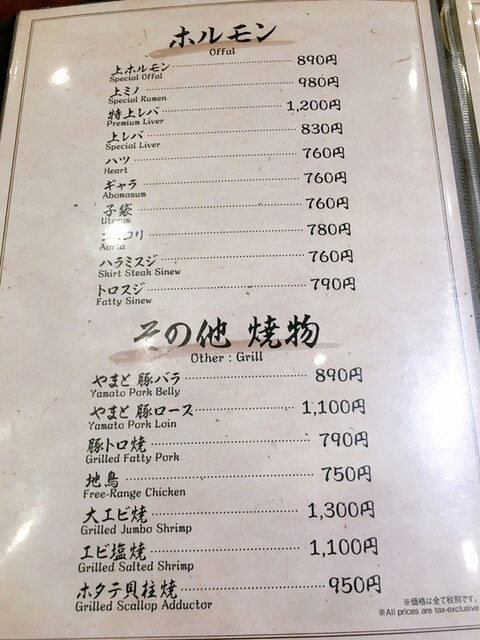 ホルモン
Offal
上ホルモン 890円
Special Offal
上ミノ 980円
Special Rumen
特上レバ 1,200円
Premium Liver
上レバ 830円
Special Liver
ハツ 760円
Heart
ギャラ 760円
Abomasum
子袋 760円
Uterus
コリ 780円
Aorta
ハラミスジ 760円
Skirt Steak Sinew
トロスジ 790円
Fatty Sinew
その他 焼物
Other : Grill
やまと 豚バラ 890円
Yamato Pork Belly
やまと 豚ロース 1,100円
Yamato Pork Loin
豚トロ焼 790円
Grilled Fatty Pork
地鳥 750円
Free-Range Chicken
大エビ焼 1,300円
Grilled Jumbo Shrimp
エビ塩焼 1,100円
Grilled Salted Shrimp
ホタテ貝柱焼 950円
Grilled Scallop Adductor
※価格は全て税別です。
※All prices are tax-exclusive